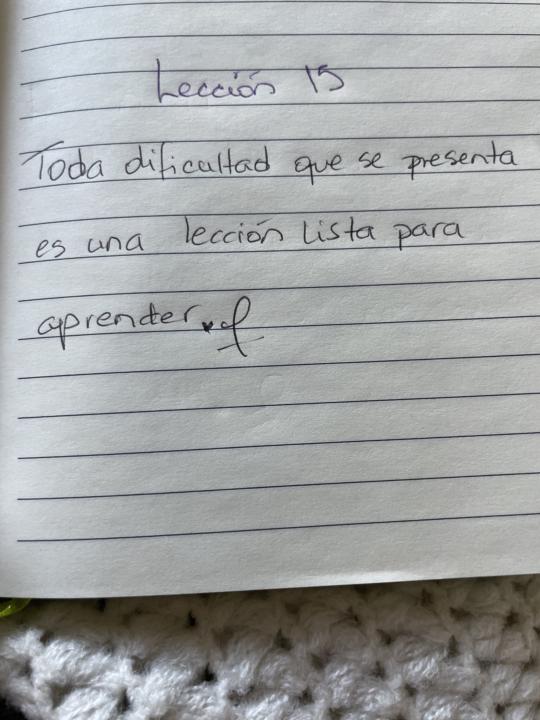 Lección 15
Toda dificultad que se presenta
es una lección lista para
aprender.